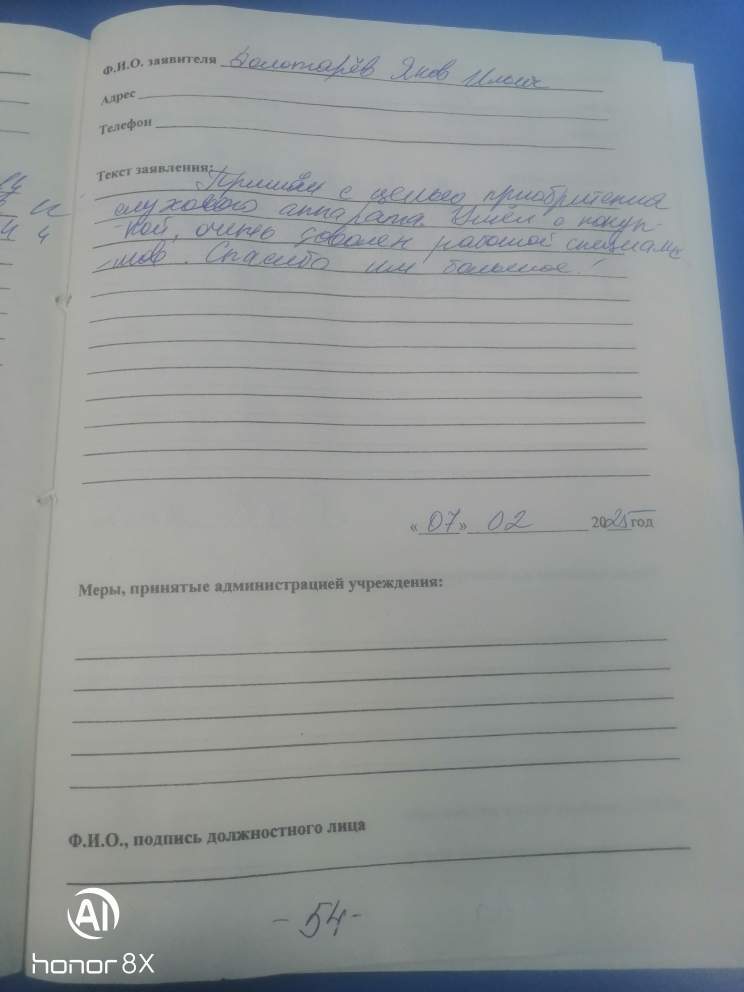 Ф.И.О. заявителя Болотарёв Яков Ильич
Адрес
Телефон
Текст заявления:
Пришёл с целью приобритения
слухового аппарата. Ушёл с покуп-
кой, очень доволен работой специалис
тов. Спасибо им большое!
«07» 02 2025 год
Меры, принятые администрацией учреждения:
Ф.И.О., подпись должностного лица
- 54 -
AI
honor 8X